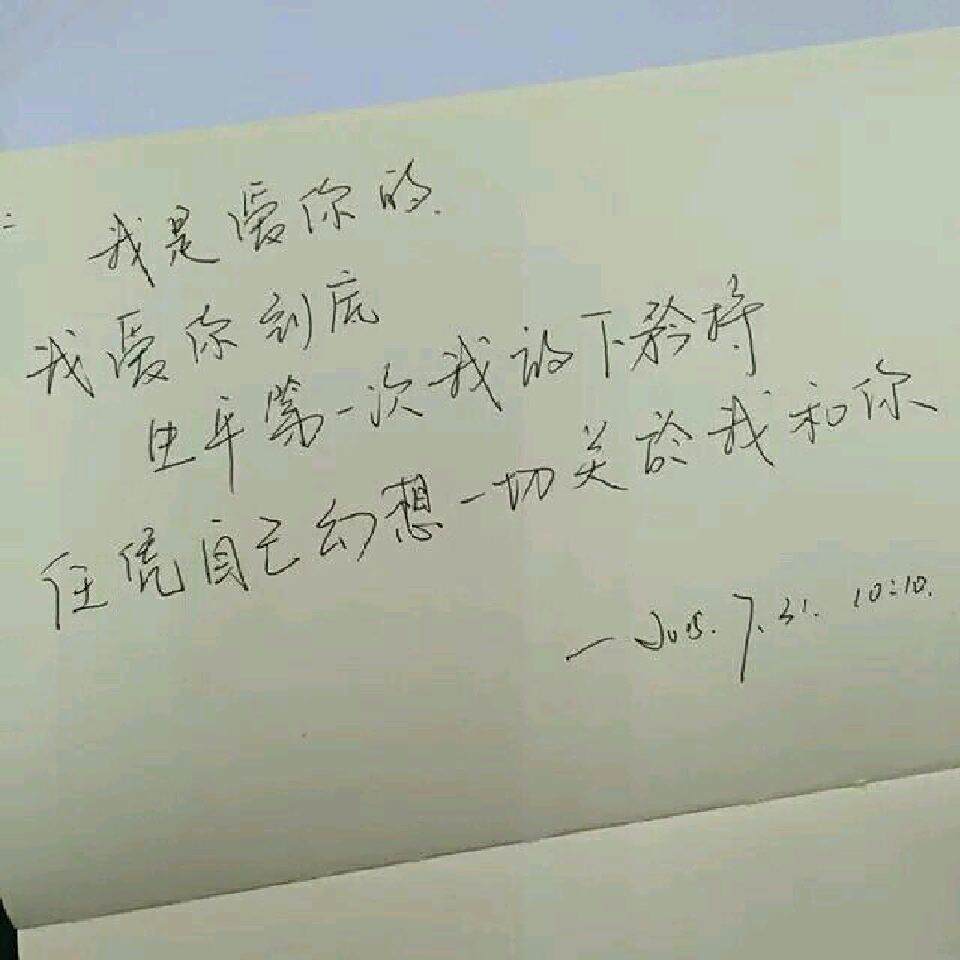 ：我是愛你的.
我愛你到底
生平第一次我放下矜持
任凭自己幻想一切关於我和你
—2015. 7. 31. 10:10.